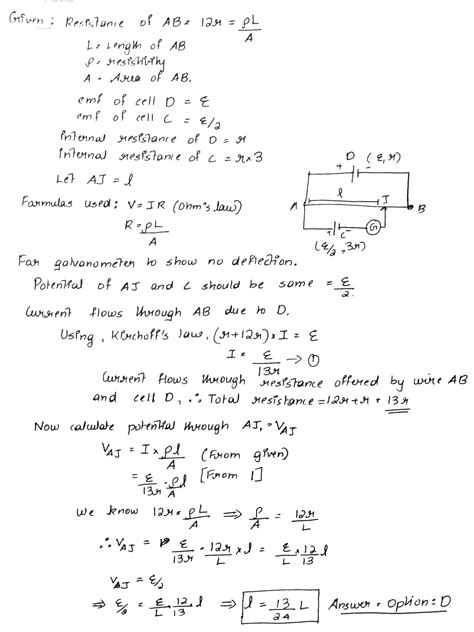 Given: Resistance of AB = 12r = ρL/A
L = Length of AB
ρ = resistivity
A = Area of AB.
emf of cell D = ε
emf of cell C = ε/2
Internal resistance of D = r
Internal resistance of C = r×3
Let AJ = l
Formulas used: V = IR (Ohm's law)
R = ρL/A
D (ε, r)
+ -
l
A J B
+ C - G
(ε/2, 3r)
For galvanometer to show no deflection.
Potential of AJ and C should be same = ε/2.
Current flows through AB due to D.
Using, Kirchoff's law, (r+12r)×I = ε
I = ε/13r → ①
Current flows through resistance offered by wire AB
and cell D, ∴ Total resistance = 12r+r = 13r
Now calculate potential through AJ, = VAJ
VAJ = I × ρl/A (From given)
= ε/13r · ρl/A [From 1]
We know 12r = ρL/A ⇒ ρ/A = 12r/L
∴ VAJ = ε/13r · 12r/L × l = ε/L · 12/13 l
VAJ = ε/2
⇒ ε/2 = ε/L · 12/13 · l ⇒ l = 13/24 L Answer = Option: D